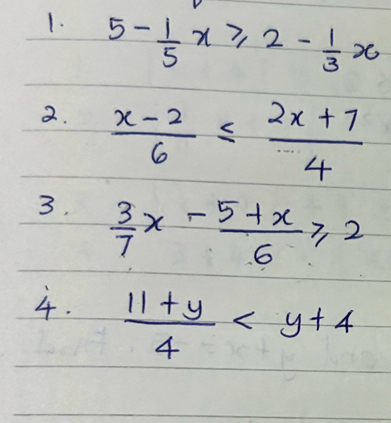 1. 5 - 1/5 x ⩾ 2 - 1/3 x
2. (x - 2)/6 ≤ (2x + 7)/4
3. 3/7 x - (5 + x)/6 ⩾ 2
4. (11 + y)/4 < y + 4